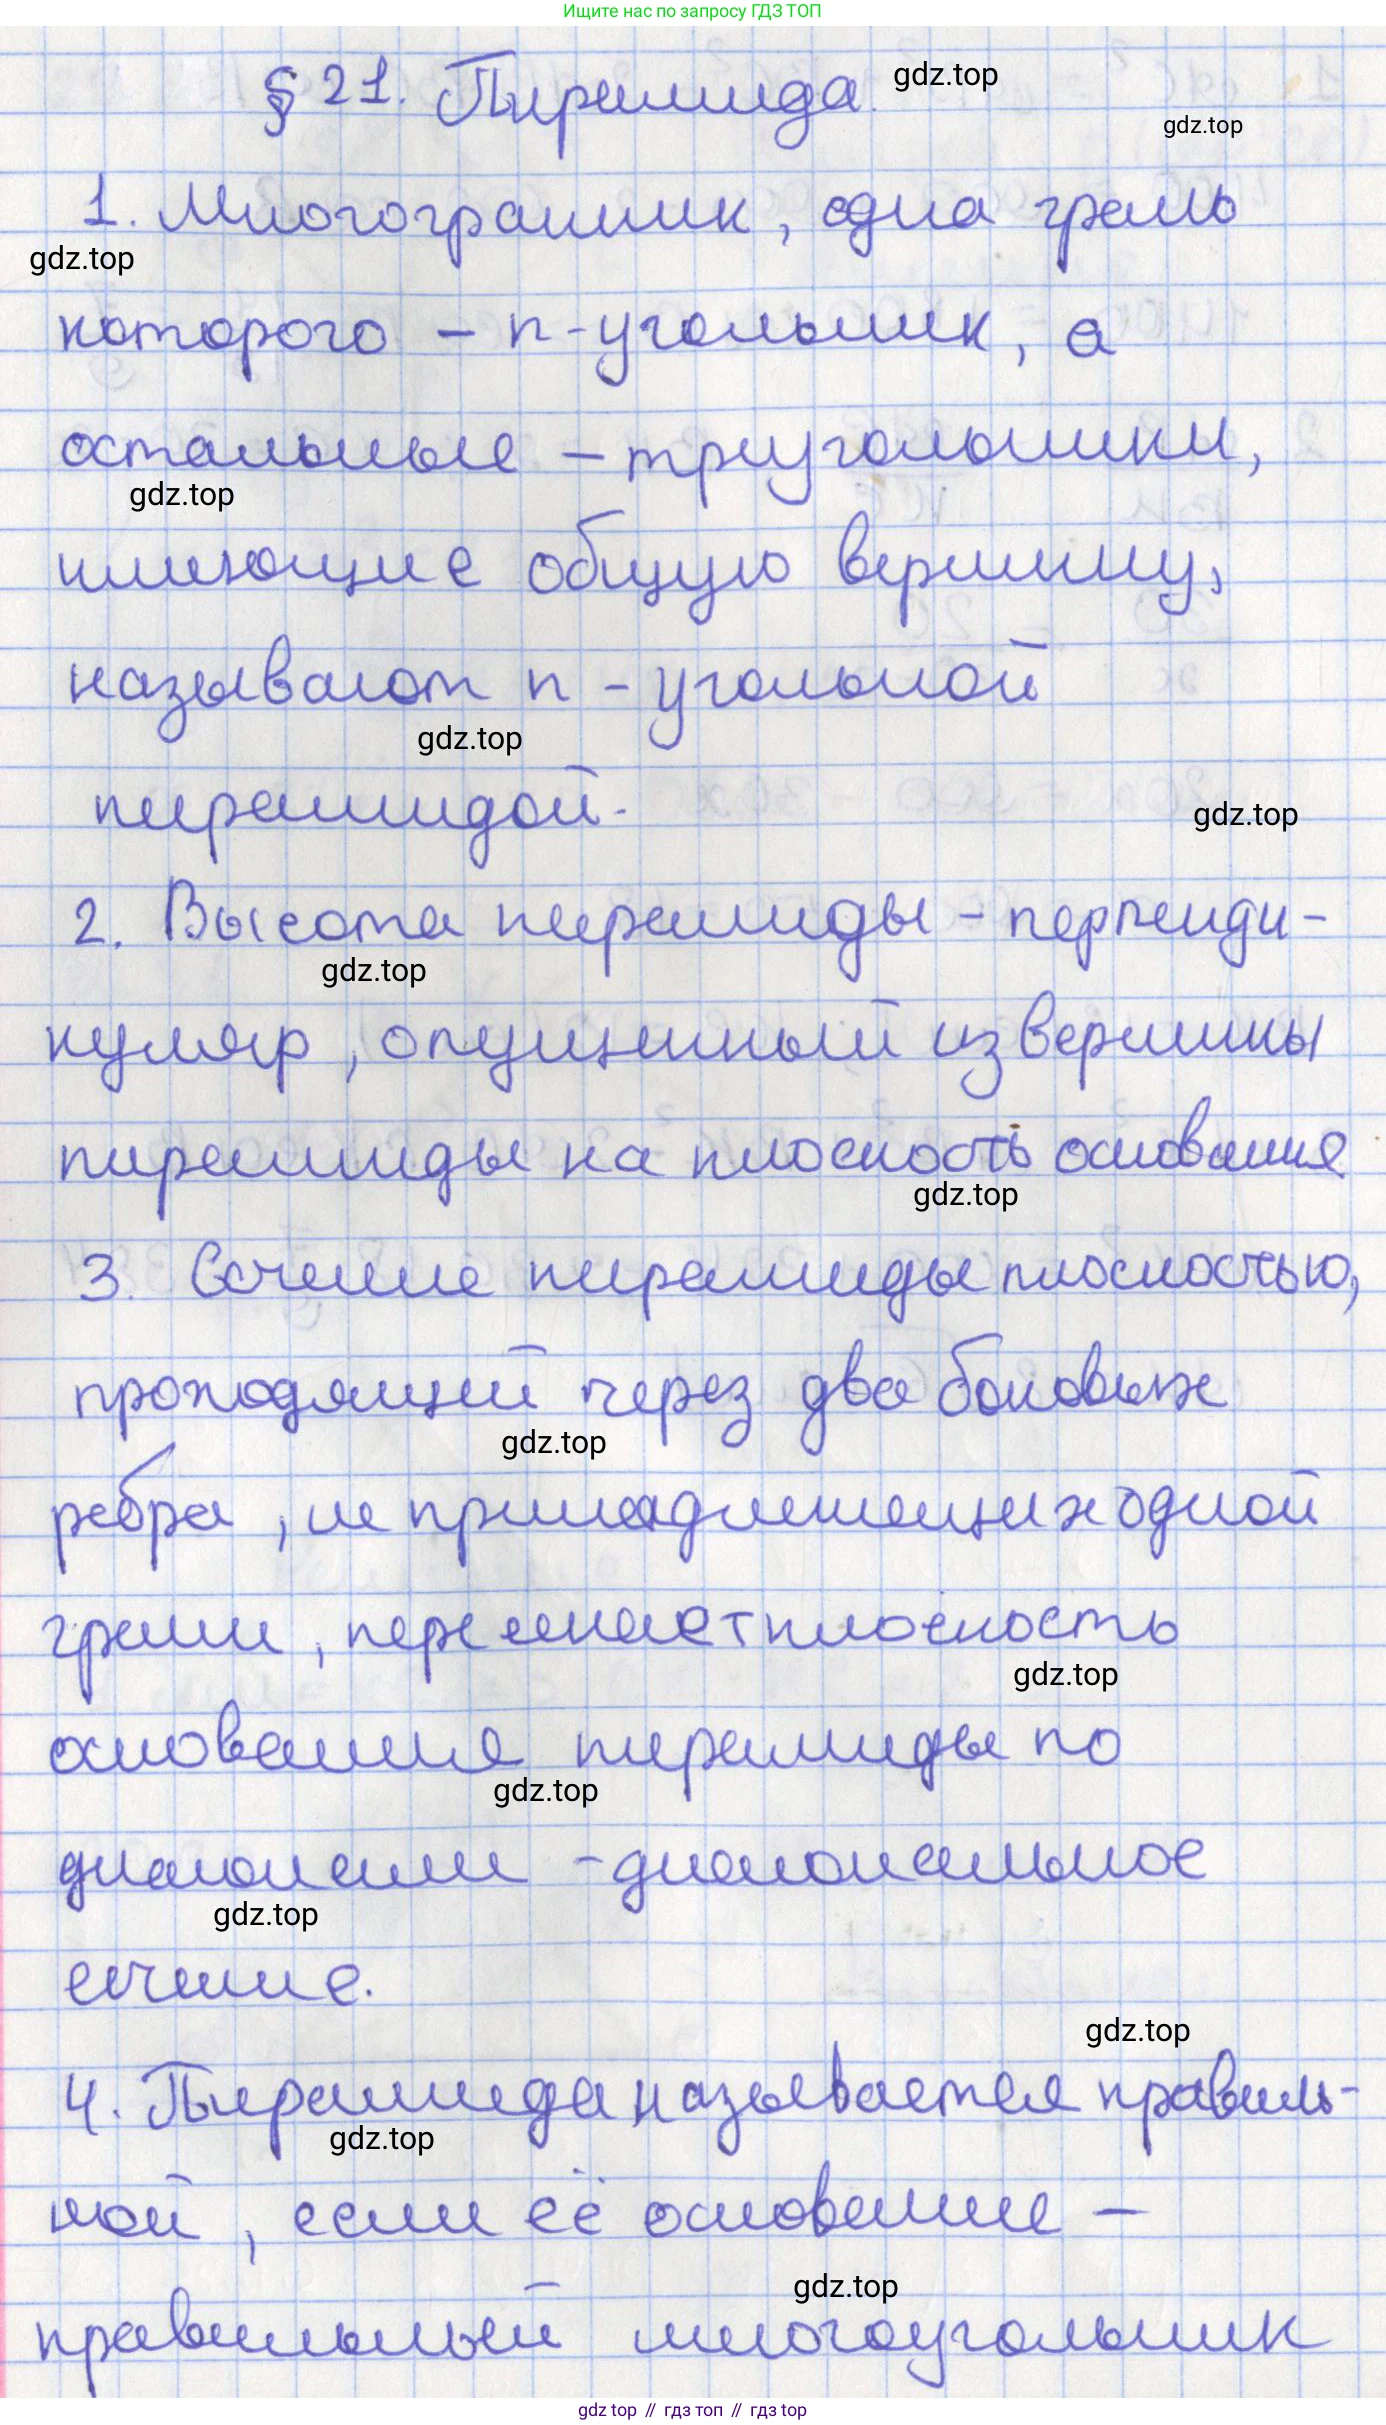 Ищите нас по запросу ГДЗ ТОП
§ 21. Пирамида.
gdz.top
gdz.top
1. Многогранник, одна грань
gdz.top
которого – n-угольник, а
остальные – треугольники,
gdz.top
имеющие общую вершину,
называют n - угольной
gdz.top
пирамидой.
gdz.top
2. Высота пирамиды – перпенди-
gdz.top
куляр, опущенный из вершины
пирамиды на плоскость основания
gdz.top
3. Сечение пирамиды плоскостью,
проходящей через два боковых
gdz.top
ребра, не принадлежащих одной
грани, пересекает плоскость
gdz.top
основания пирамиды по
gdz.top
диагонали – диагональное
gdz.top
сечение.
gdz.top
4. Пирамида называется правиль-
gdz.top
ной, если её основание –
gdz.top
правильный многоугольник
gdz.top // гдз топ // гдз top